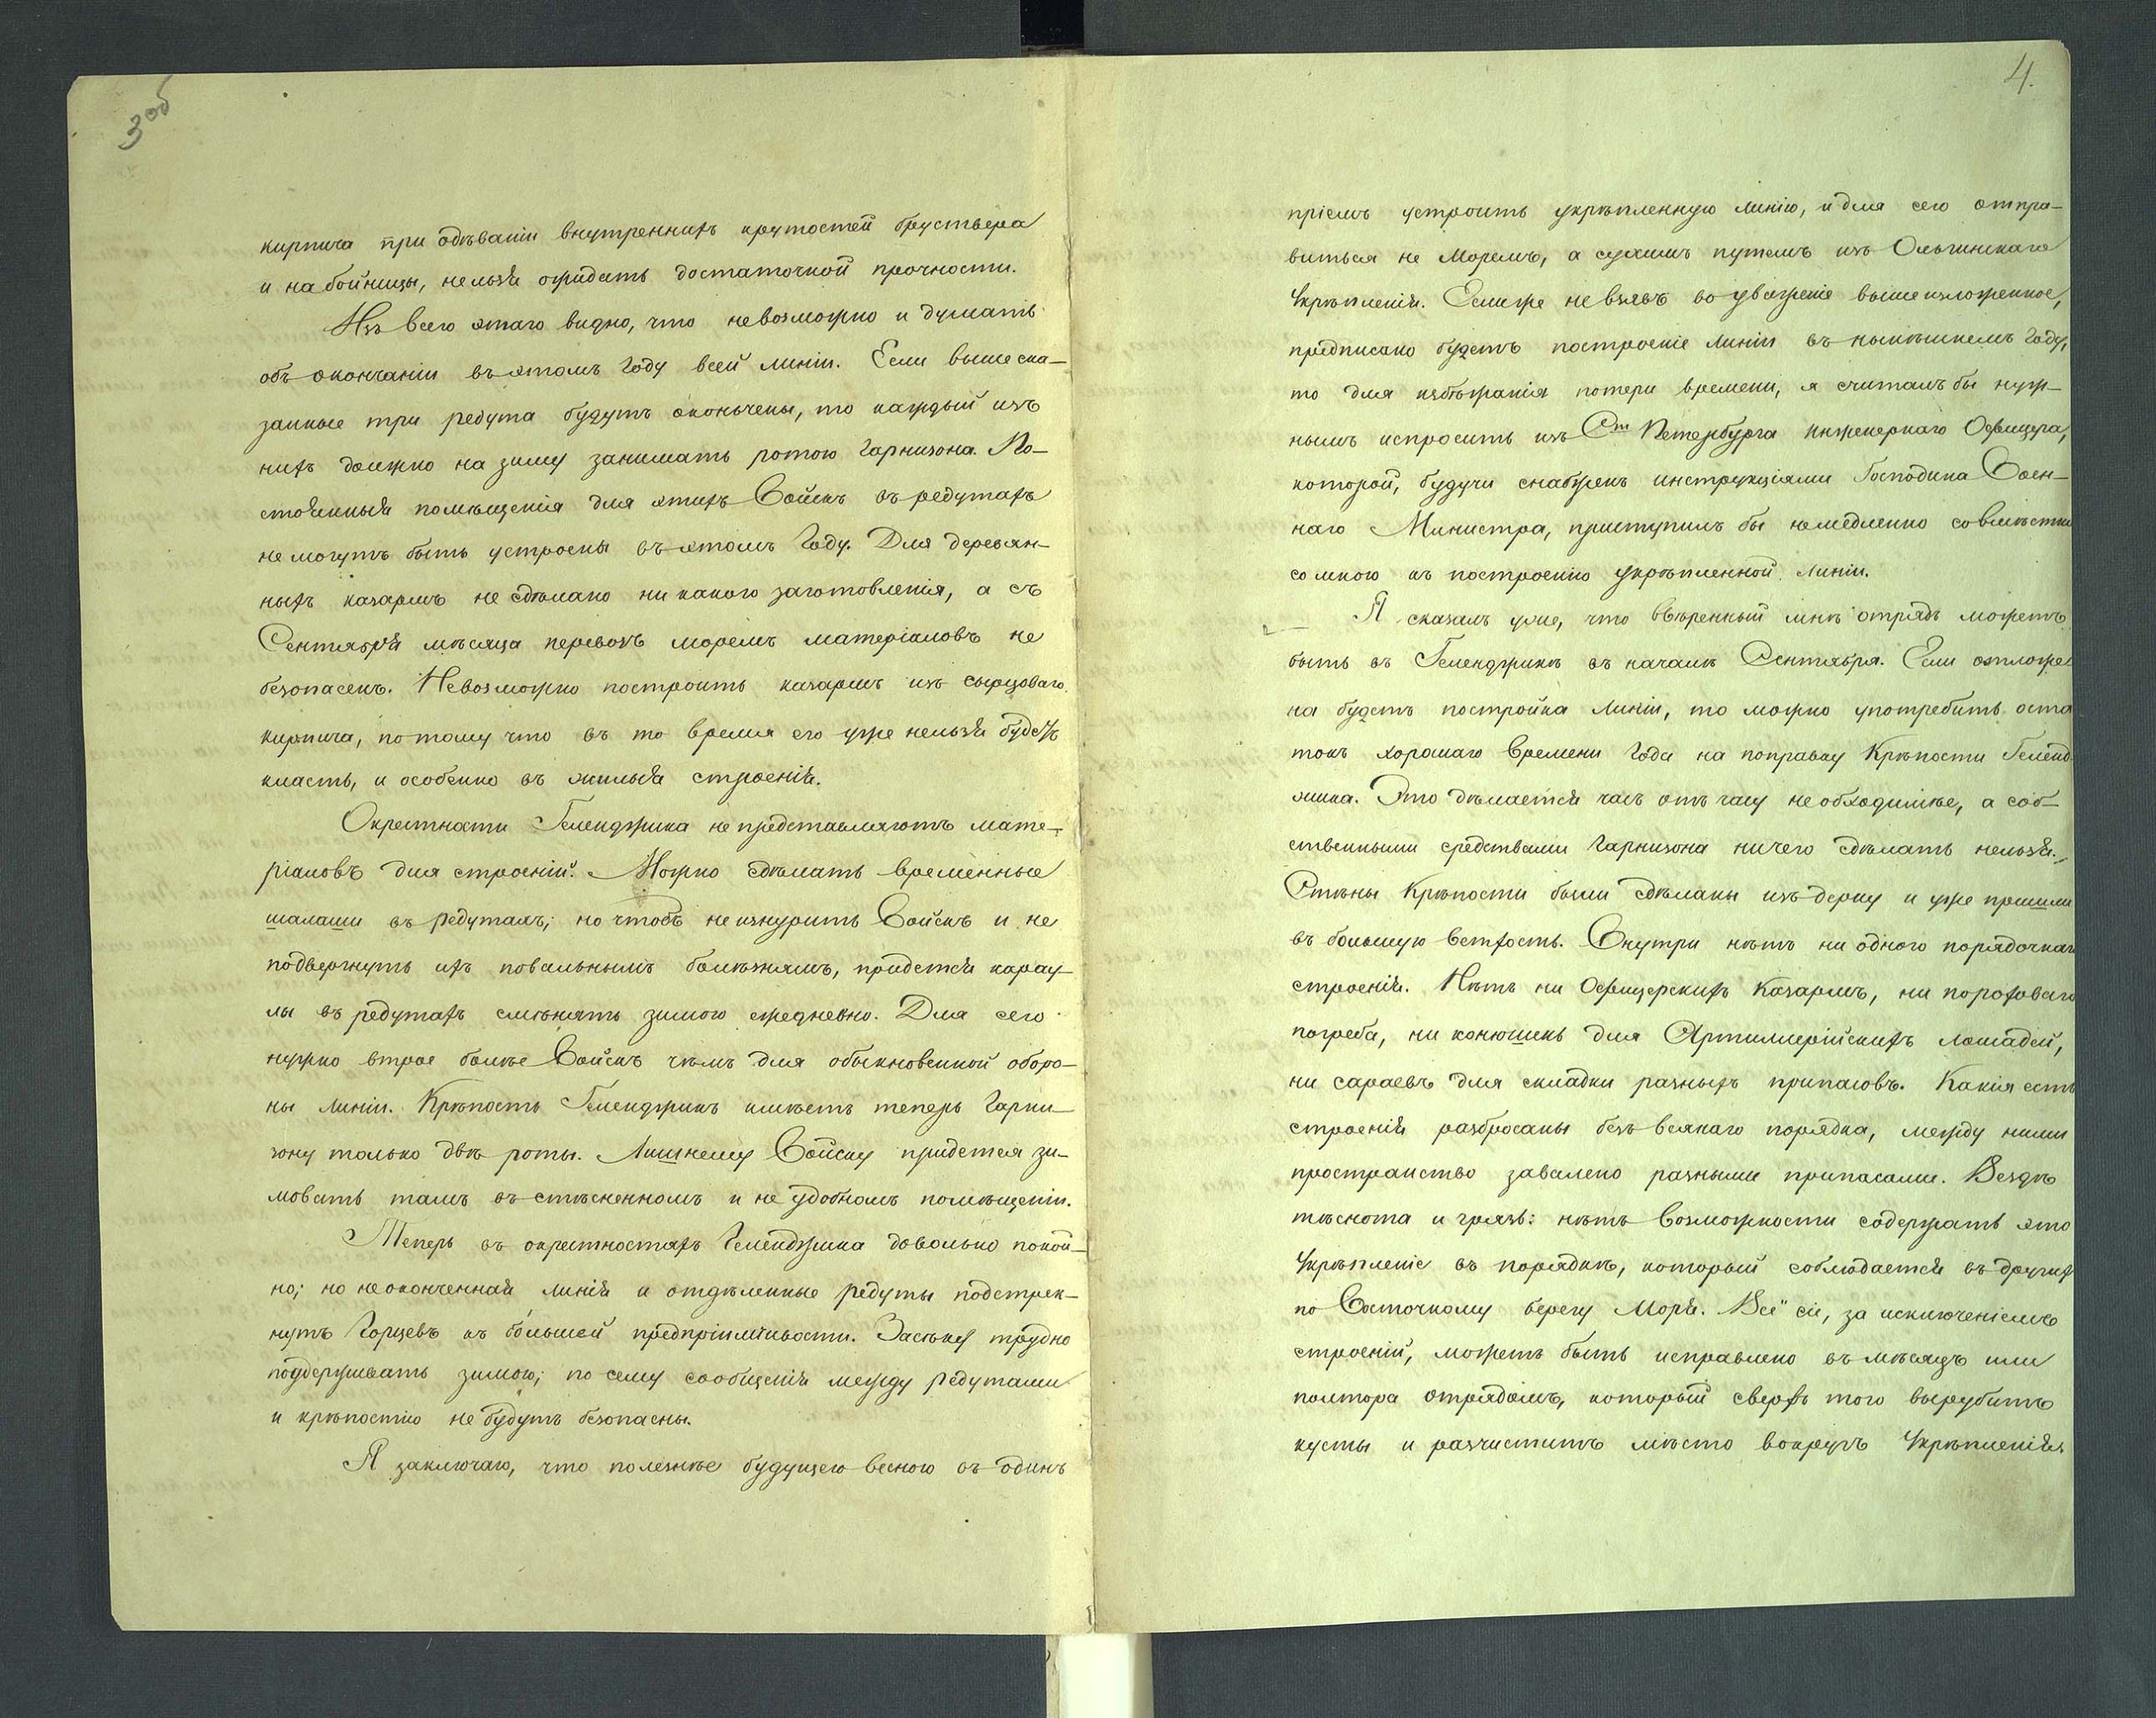 3об
кирпича при одѣваніи внутреннихъ крутостей бруствера
и на бойницы, нельзя ожидать достаточной прочности.
Изъ всего этаго видно, что невозможно и думать
объ окончаніи въ этомъ году всей линіи. Если выше ска-
занные три редута будутъ оконьчены, то каждый изъ
нихъ должно на зиму занимать ротою Гарнизона. По-
стоянныя помѣщенія для этихъ Войскъ въ редутахъ
не могутъ быть устроены въ этомъ Году. Для деревян-
ныхъ казармъ не сдѣлано ни какого заготовленія, а съ
Сентября мѣсяца перевозъ моремъ матеріаловъ не
безопасенъ. Невозможно построить казармъ изъ сырцоваго
кирпича, потому что въ то время его уже нельзя будетъ
класть, и особенно въ жилыя строенія.
Окрестности Геленджика не представляютъ мате-
ріаловъ для строеній. Можно сдѣлать временные
шалаши въ редутахъ; но чтобъ не изнурить Войскъ и не
подвергнуть ихъ повальнымъ болѣзнямъ, придется карау-
лы въ редутахъ смѣнять зимою ежедневно. Для сего
нужно втрое болѣе Войскъ чѣмъ для обыкновенной оборо-
ны линіи. Крѣпость Геленджикъ имѣетъ теперь Гарни-
зону только двѣ роты. Лишнему Войску придется зи-
мовать тамъ въ стѣсненномъ и не удобномъ помѣщеніи.
Теперь въ окрестностяхъ Геленджика довольно покой-
но; но неоконченная линія и отдѣленные редуты подстрек-
нутъ Горцевъ къ большей предпріимчивости. Засѣку трудно
поддерживать зимою; по сему сообщенія между редутами
и крѣпостію не будутъ безопасны.
Я заключаю, что полезнѣе будущею весною въ одинъ
4.
пріемъ устроить укрѣпленную линію, и для сего отпра-
виться не Моремъ, а сухимъ путемъ изъ Ольгинскаго
Укрѣпленія. Если же не взявъ во уваженіе выше изложенное,
предписано будетъ построеніе линіи въ нынѣшнемъ Году,
то для избѣжанія потери времени, я считалъ бы нуж-
нымъ испросить изъ Ст Петербурга инженернаго Офицера,
которой, будучи снабженъ инструкціями Господина Воен-
наго Министра, приступилъ бы немедленно совмѣстно
со мною къ построенію укрѣпленной линіи.
Я сказалъ уже, что ввѣренный мнѣ отрядъ можетъ
быть въ Геленджикѣ въ началѣ Сентября. Если отложе
на будетъ постройка линіи, то можно употребить оста
токъ хорошаго Времени Года на поправку Крѣпости Геленд
жика. Это дѣлается часъ отъ часу необходимѣе, а соб-
ственными средствами Гарнизона ничего сдѣлать нельзя.
Стѣны Крѣпости были сдѣланы изъ дерну и уже пришли
въ большую Ветхость. Внутри нѣтъ ни одного порядочнаго
строенія. Нѣтъ ни Офицерскихъ Казармъ, ни пороховаго
погреба, ни конюшенъ для Артиллерійскихъ лошадей,
ни сараевъ для складки разныхъ припасовъ. Какія есть
строенія разбросаны безъ всякаго порядка, между ними
пространство завалено разными припасами. Вездѣ
тѣснота и грязь: нѣтъ Возможности содержать это
Укрѣпленіе въ порядкѣ, который соблюдается въ другихъ
по Восточному берегу Моря. Всё сіи, за исключеніемъ
строеній, можетъ быть исправлено въ мѣсяцъ или
полтора отрядомъ, который сверхъ того вырубитъ
кусты и разчиститъ мѣсто вокругъ Укрѣпленія